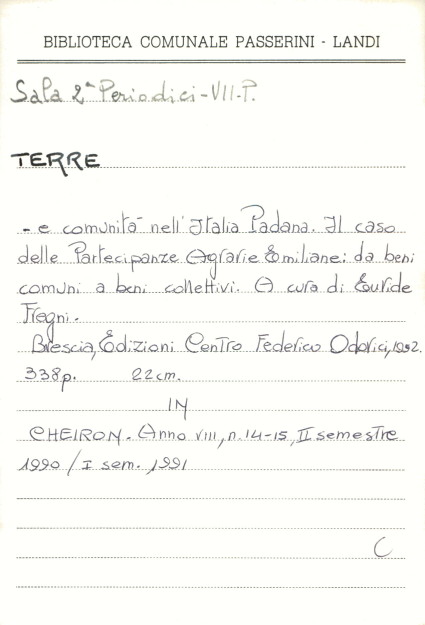 BIBLIOTECA COMUNALE PASSERINI - LANDI
Sala 2ª Periodici-VII-P.
TERRE
- e comunità nell'Italia Padana. Il caso
delle Partecipanze Agrarie Emiliane: da beni
comuni a beni collettivi. A cura di Euride
Fregni.
Brescia, Edizioni Centro Federico Odorici, 1992.
338p. 22cm.
IN
CHEIRON. Anno VIII, n. 14-15, II semestre
1990 / I sem. 1991
C